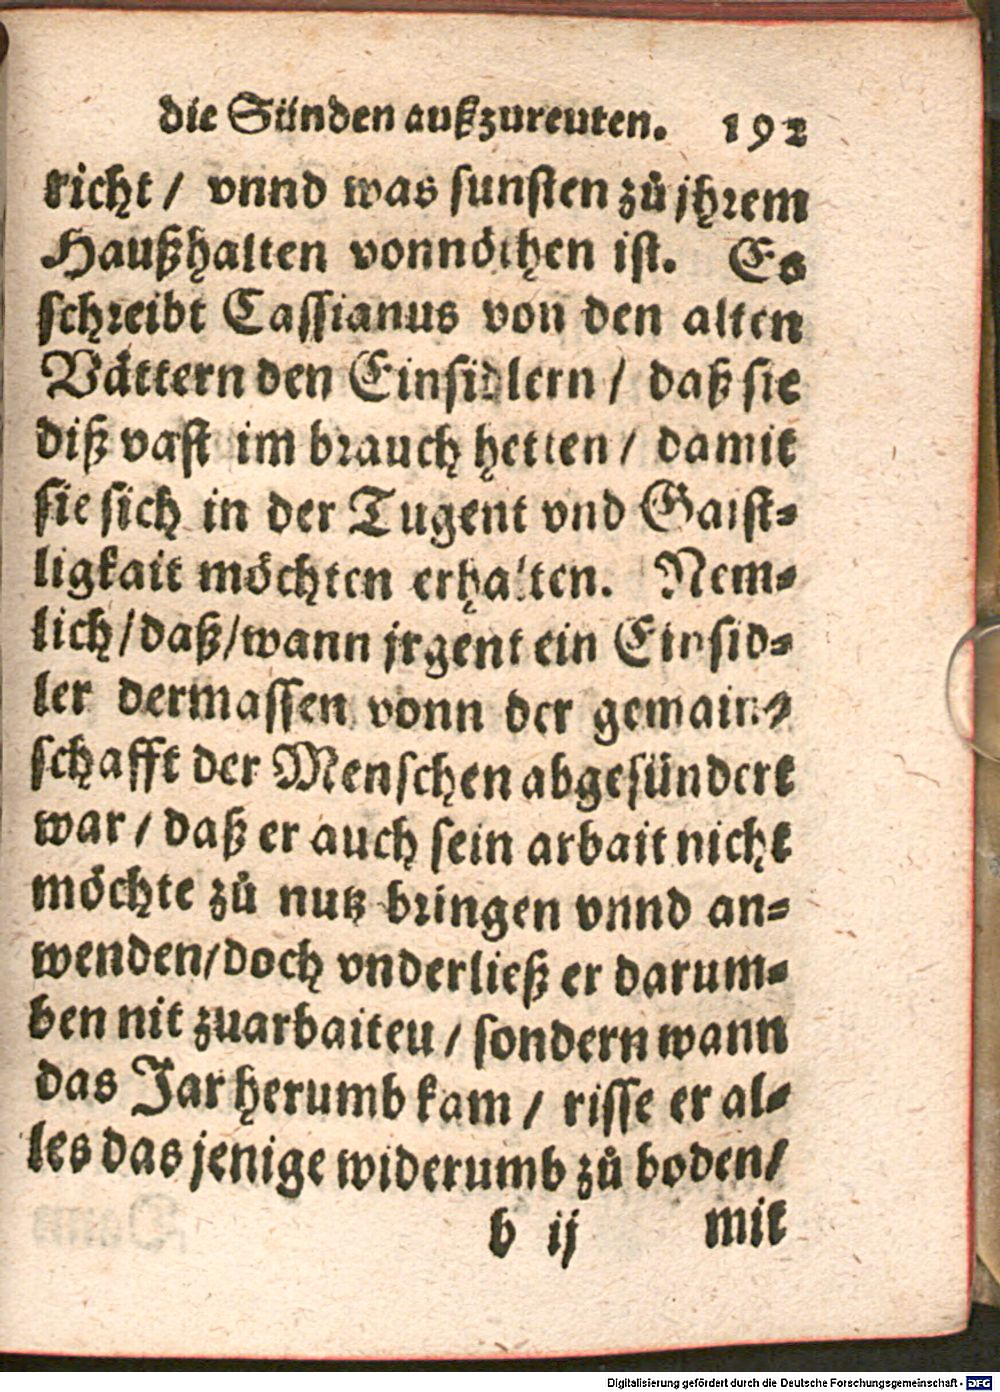 die Sünden außzureuten. 192
richt / vnnd was sunsten zů jhrem
Haußhalten vonnöthen ist. Es
schreibt Cassianus von den alten
Vättern den Einsidlern / daß sie
diß vast im brauch hetten / damit
sie sich in der Tugent vnd Gaist-
ligkait möchten erhalten. Nem-
lich / daß / wann jrgent ein Einsid-
ler dermassen vonn der gemain-
schafft der Menschen abgesündert
war / daß er auch sein arbait nicht
möchte zů nutz bringen vnnd an-
wenden / doch vnderließ er darum-
ben nit zuarbaiteu / sondern wann
das Jar herumb kam / risse er al-
les das jenige widerumb zů boden /
b ij mit
Digitalisierung gefördert durch die Deutsche Forschungsgemeinschaft - DFG